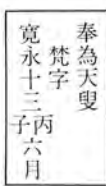 奉為天叟
梵字
寛永十三丙子六月